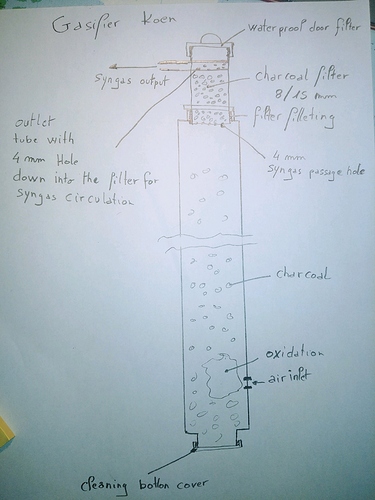 Gasifier Koen
waterproof door filter
syngas output
charcoal filter
8/15 mm
filter filleting
outlet
tube with
4 mm Hole
down into the filter for
syngas circulation
4 mm
syngas passage hole
charcoal
oxidation
air inlet
cleaning botton cover